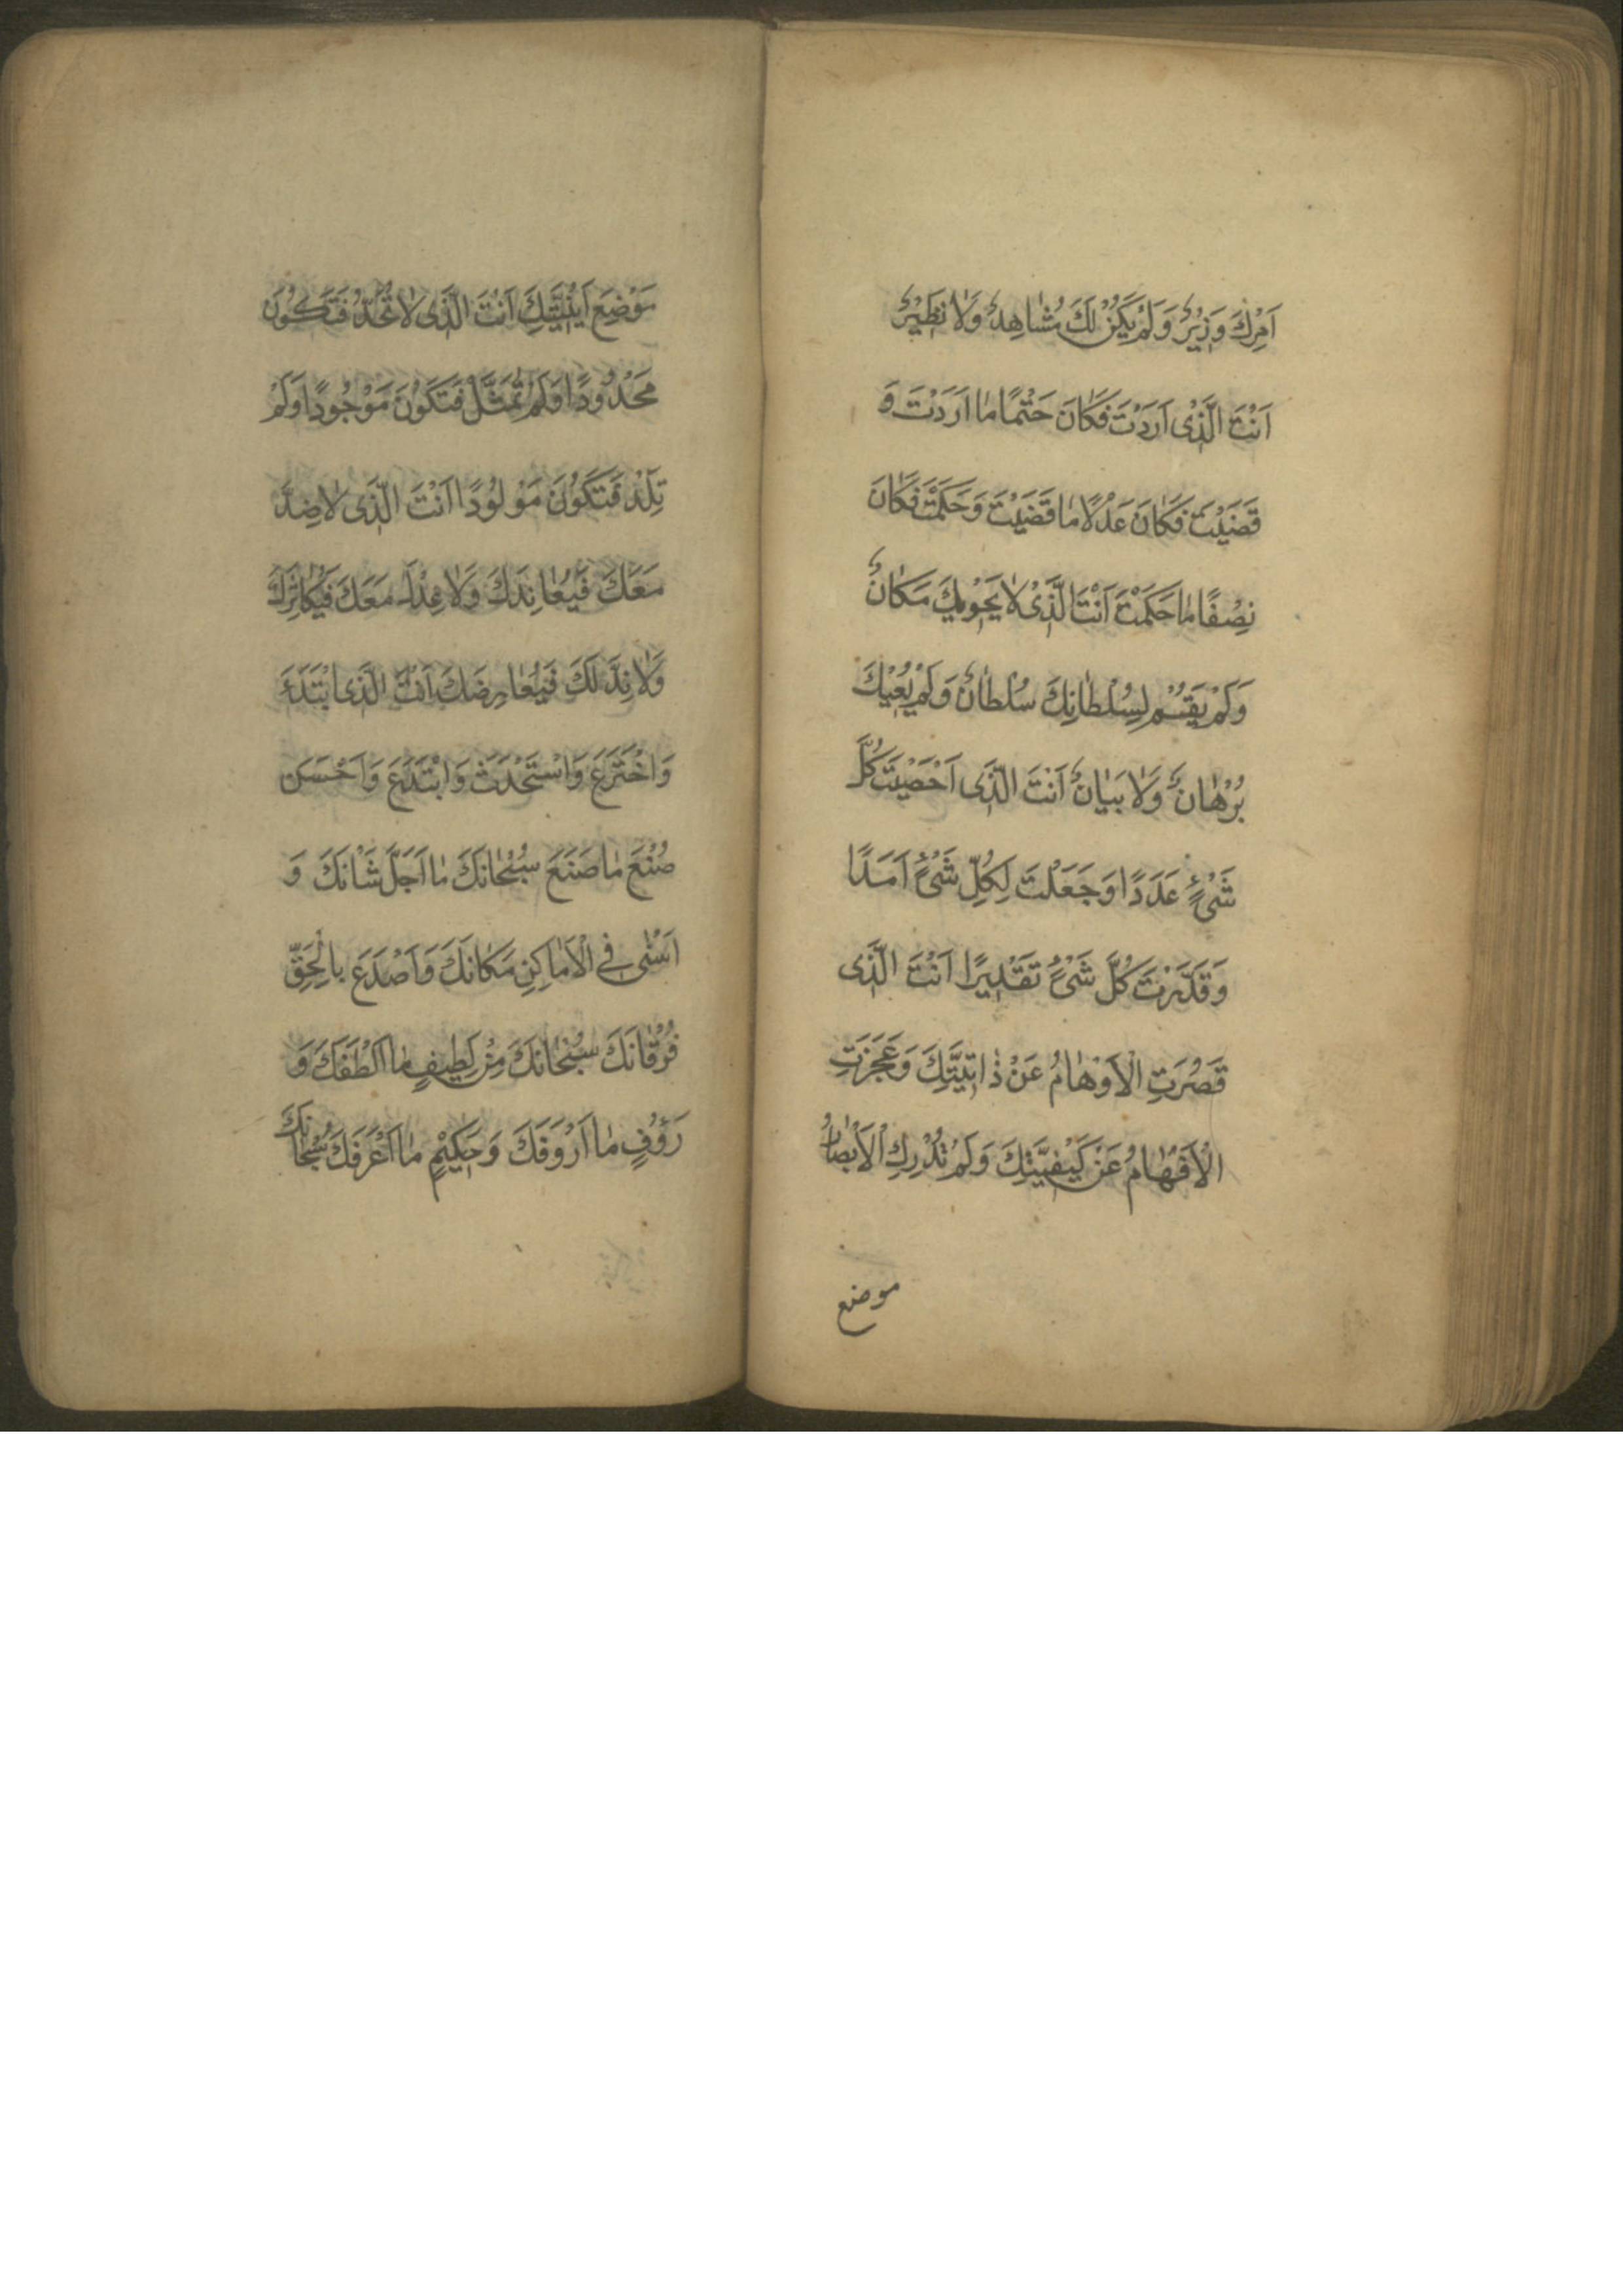 اَمْرِكَ وَزِيْرٌ وَلَمْ يَكُنْ لَكَ مُشَاهِدٌ وَلَا نَظِيْرٌ
اَنْتَ الَّذِىْ اَرَدْتَ فَكَانَ حَتْمًا مَا اَرَدْتَ وَ
قَضَيْتَ فَكَانَ عَدْلًا مَا قَضَيْتَ وَحَكَمْتَ فَكَانَ
نِصْفًا مَا حَكَمْتَ اَنْتَ الَّذِىْ لَا يَحْوِيْكَ مَكَانٌ
وَلَمْ يَقُمْ لِسُلْطَانِكَ سُلْطَانٌ وَلَمْ يُعْيِكَ
بُرْهَانٌ وَلَا بَيَانٌ اَنْتَ الَّذِى اَحْصَيْتَ كُلَّ
شَىْءٍ عَدَدًا وَجَعَلْتَ لِكُلِّ شَىْءٍ اَمَدًا
وَقَدَّرْتَ كُلَّ شَىْءٍ تَقْدِيرًا اَنْتَ الَّذِى
قَصُرَتِ الْاَوْهَامُ عَنْ ذَاتِيَّتِكَ وَعَجَزَتِ
الْاَفْهَامُ عَنْ كَيْفِيَّتِكَ وَلَمْ تُدْرِكِ الْاَبْصَارُ
موضع
مَوْضِعَ اَيْنِيَّتِكَ اَنْتَ الَّذِى لَا تُحَدُّ فَتَكُوْنَ
مَحْدُوْدًا وَلَمْ تُمَثَّلْ فَتَكُوْنَ مَوْجُوْدًا وَلَمْ
تَلِدْ فَتَكُوْنَ مَوْلُوْدًا اَنْتَ الَّذِى لَا ضِدَّ
مَعَكَ فَيُعَانِدَكَ وَلَا عِدْلَ مَعَكَ فَيُكَاثِرَكَ
وَلَا نِدَّ لَكَ فَيُعَارِضَكَ اَنْتَ الَّذِى ابْتَدَءَ
وَاخْتَرَعَ وَاسْتَحْدَثَ وَابْتَدَعَ وَاَحْسَنَ
صُنْعَ مَا صَنَعَ سُبْحَانَكَ مَا اَجَلَّ شَانَكَ وَ
اَسْنٰى فِى الْاَمَاكِنِ مَكَانَكَ وَاَصْدَعَ بِالْحَقِّ
فُرْقَانَكَ سُبْحَانَكَ مِنْ لَطِيفٍ مَا اَلْطَفَكَ وَ
رَؤُفٍ مَا اَرْوَفَكَ وَحَكِيْمٍ مَا اَعْرَفَكَ سُبْحَانَكَ